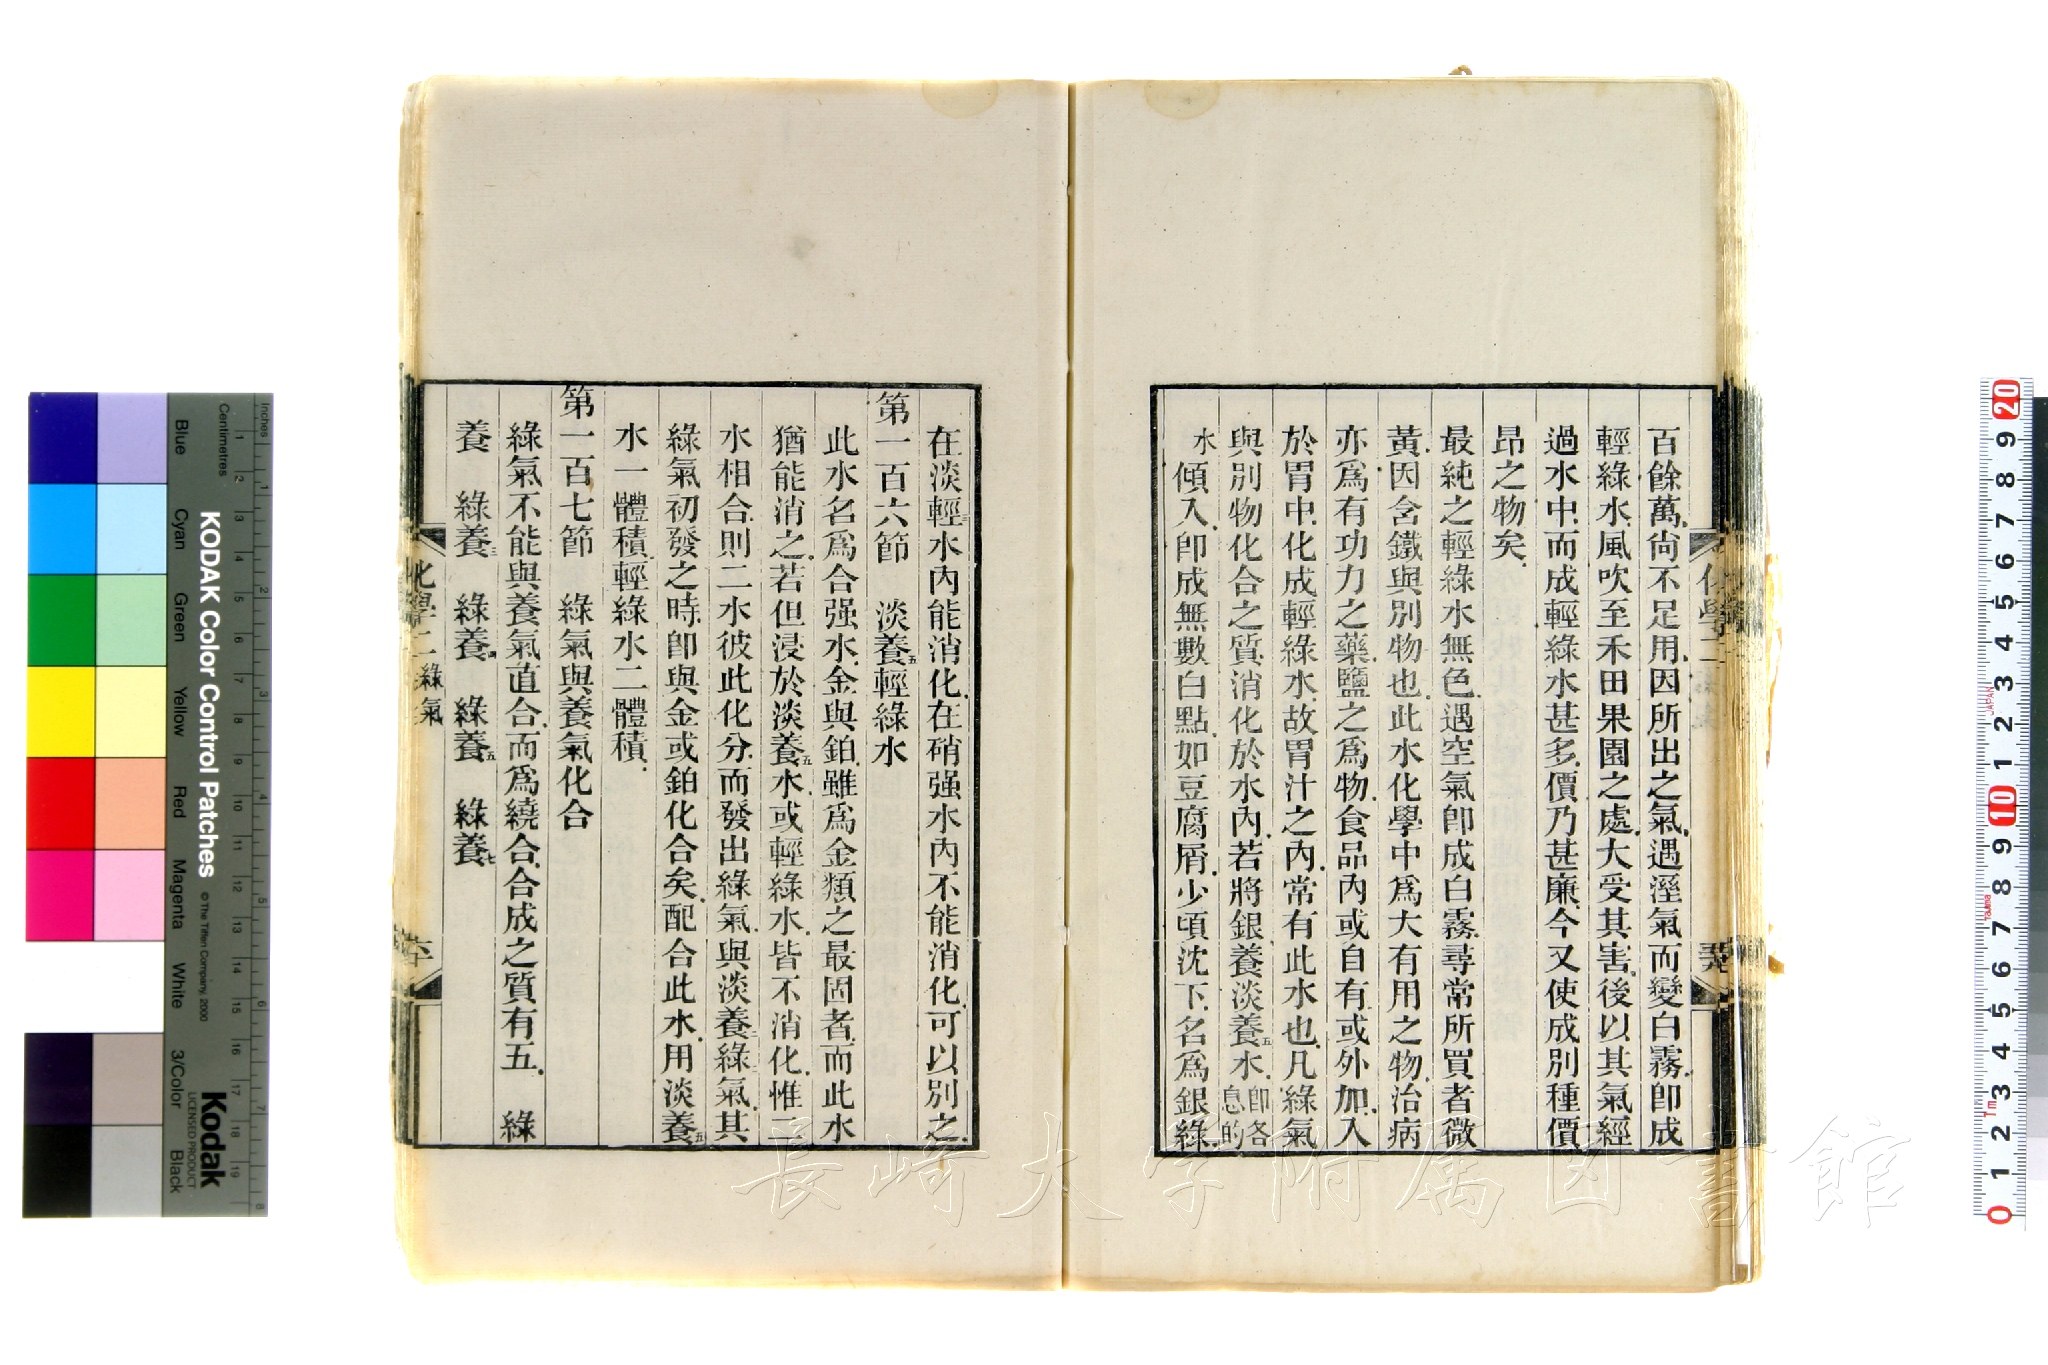 百餘萬尙不足用因所出之氣遇溼氣而變白霧卽成
輕綠水風吹至禾田果園之處大受其害後以其氣經
過水中而成輕綠水甚多價乃甚廉今又使成別種價
昂之物矣
最純之輕綠水無色遇空氣卽成白霧尋常所買者微
黃因含鐵與別物也此水化學中爲大有用之物治病
亦爲有功力之藥鹽之爲物食品內或自有或外加入
於胃中化成輕綠水故胃汁之內常有此水也凡綠氣
與別物化合之質消化於水內若將銀養淡養五水卽各息的
水傾入卽成無數白點如豆腐屑少頃沈下名爲銀綠
在淡輕三水內能消化在硝强水內不能消化可以別之
第一百六節 淡養五輕綠水
此水名爲合强水金與鉑雖爲金類之最固者而此水
猶能消之若但浸於淡養五水或輕綠水皆不消化惟二
水相合則二水彼此化分而發出綠氣與淡養二綠氣其
綠氣初發之時卽與金或鉑化合矣配合此水用淡養五
水一體積輕綠水二體積
第一百七節 綠氣與養氣化合
綠氣不能與養氣直合而爲繞合合成之質有五 綠
養 綠養三 綠養四 綠養五 綠養七
化學二 綠氣
六十
KODAK Color Control Patches
© The Tiffen Company, 2000
Kodak
LICENSED PRODUCT
Inches
Centimetres
Blue
Cyan
Green
Yellow
Red
Magenta
White
3/Color
Black
長崎大学附属図書館
JAPAN